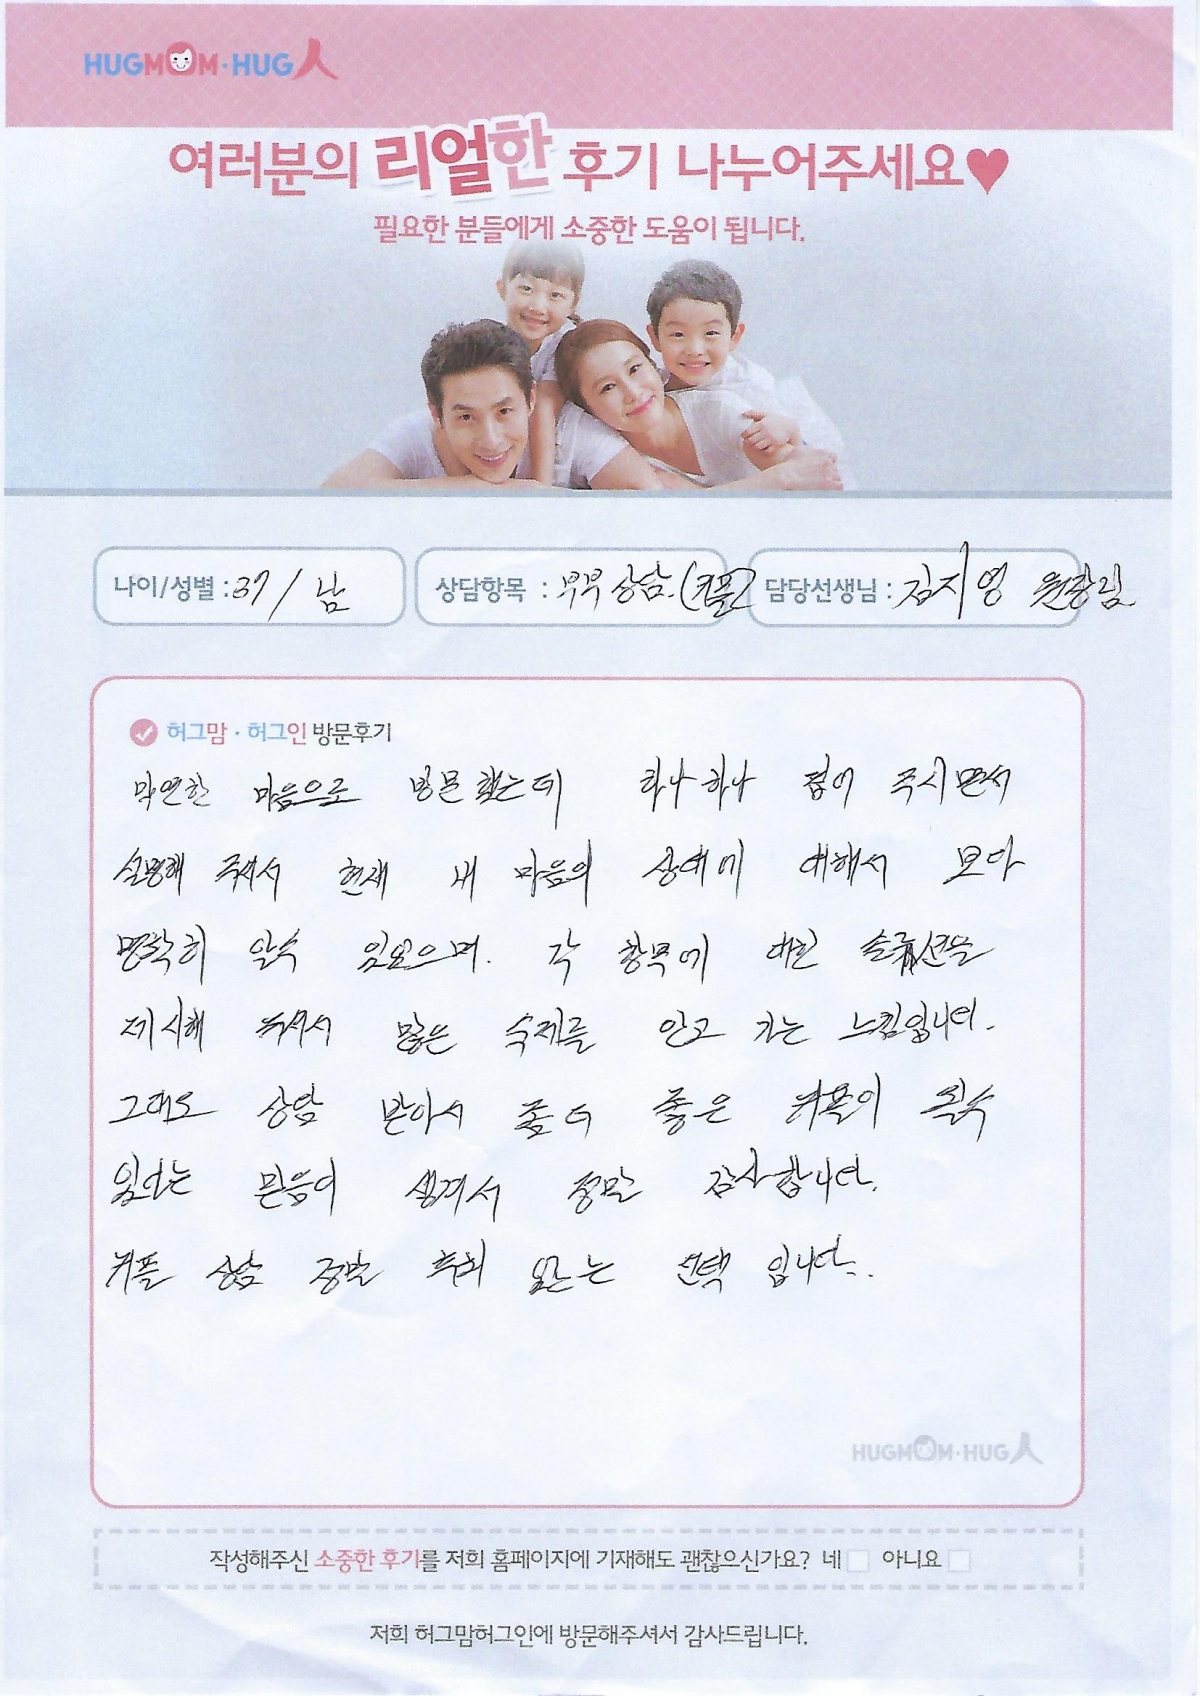 HUGMOM·HUG人
여러분의 리얼한 후기 나누어주세요♥
필요한 분들에게 소중한 도움이 됩니다.
나이/성별 : 37 / 남
상담항목 : 부부상담.(커플)
담당선생님 : 김지영 원장님
허그맘·허그인 방문후기
막연한 마음으로 방문했는데 하나하나 짚어 주시면서
설명해 주셔서 현재 내 마음의 상태에 대해서 보다
명확히 알수 있었으며. 각 항목에 대한 솔루션을
제시해 주셔서 많은 숙제를 안고 가는 느낌입니다.
그래도 상담 받아서 좀더 좋은 커플이 될수
있다는 믿음이 생겨서 정말 감사합니다.
커플 상담 정말 후회 없는 선택 입니다..
HUGMOM·HUG人
작성해주신 소중한 후기를 저희 홈페이지에 기재해도 괜찮으신가요? 네 □ 아니요 □
저희 허그맘허그인에 방문해주셔서 감사드립니다.